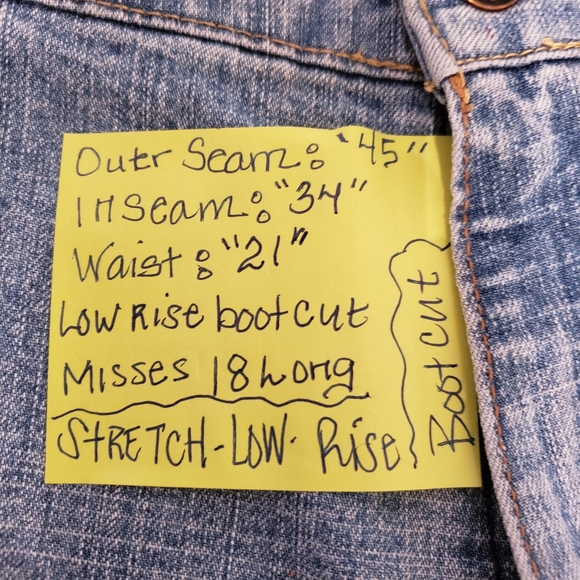 Outer Seam: "45"
Inseam: "34"
Waist: "21"
Low Rise boot cut
Misses 18 Long
STRETCH-LOW-Rise
Boot cut